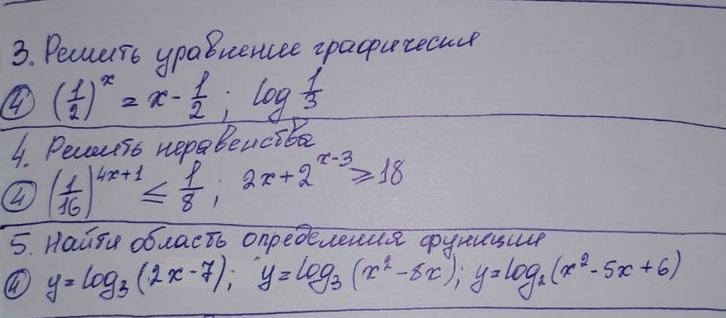 3. Решить уравнение графически
④ (1/2)^x = x - 1/2 ; log 1/3
4. Решить неравенства
④ (1/16)^(4x+1) ≤ 1/8 ; 2x + 2^(x-3) ≥ 18
5. Найти область определения функции
④ y = log₃ (2x - 7); y = log₃ (x² - 8x); y = log₂ (x² - 5x + 6)